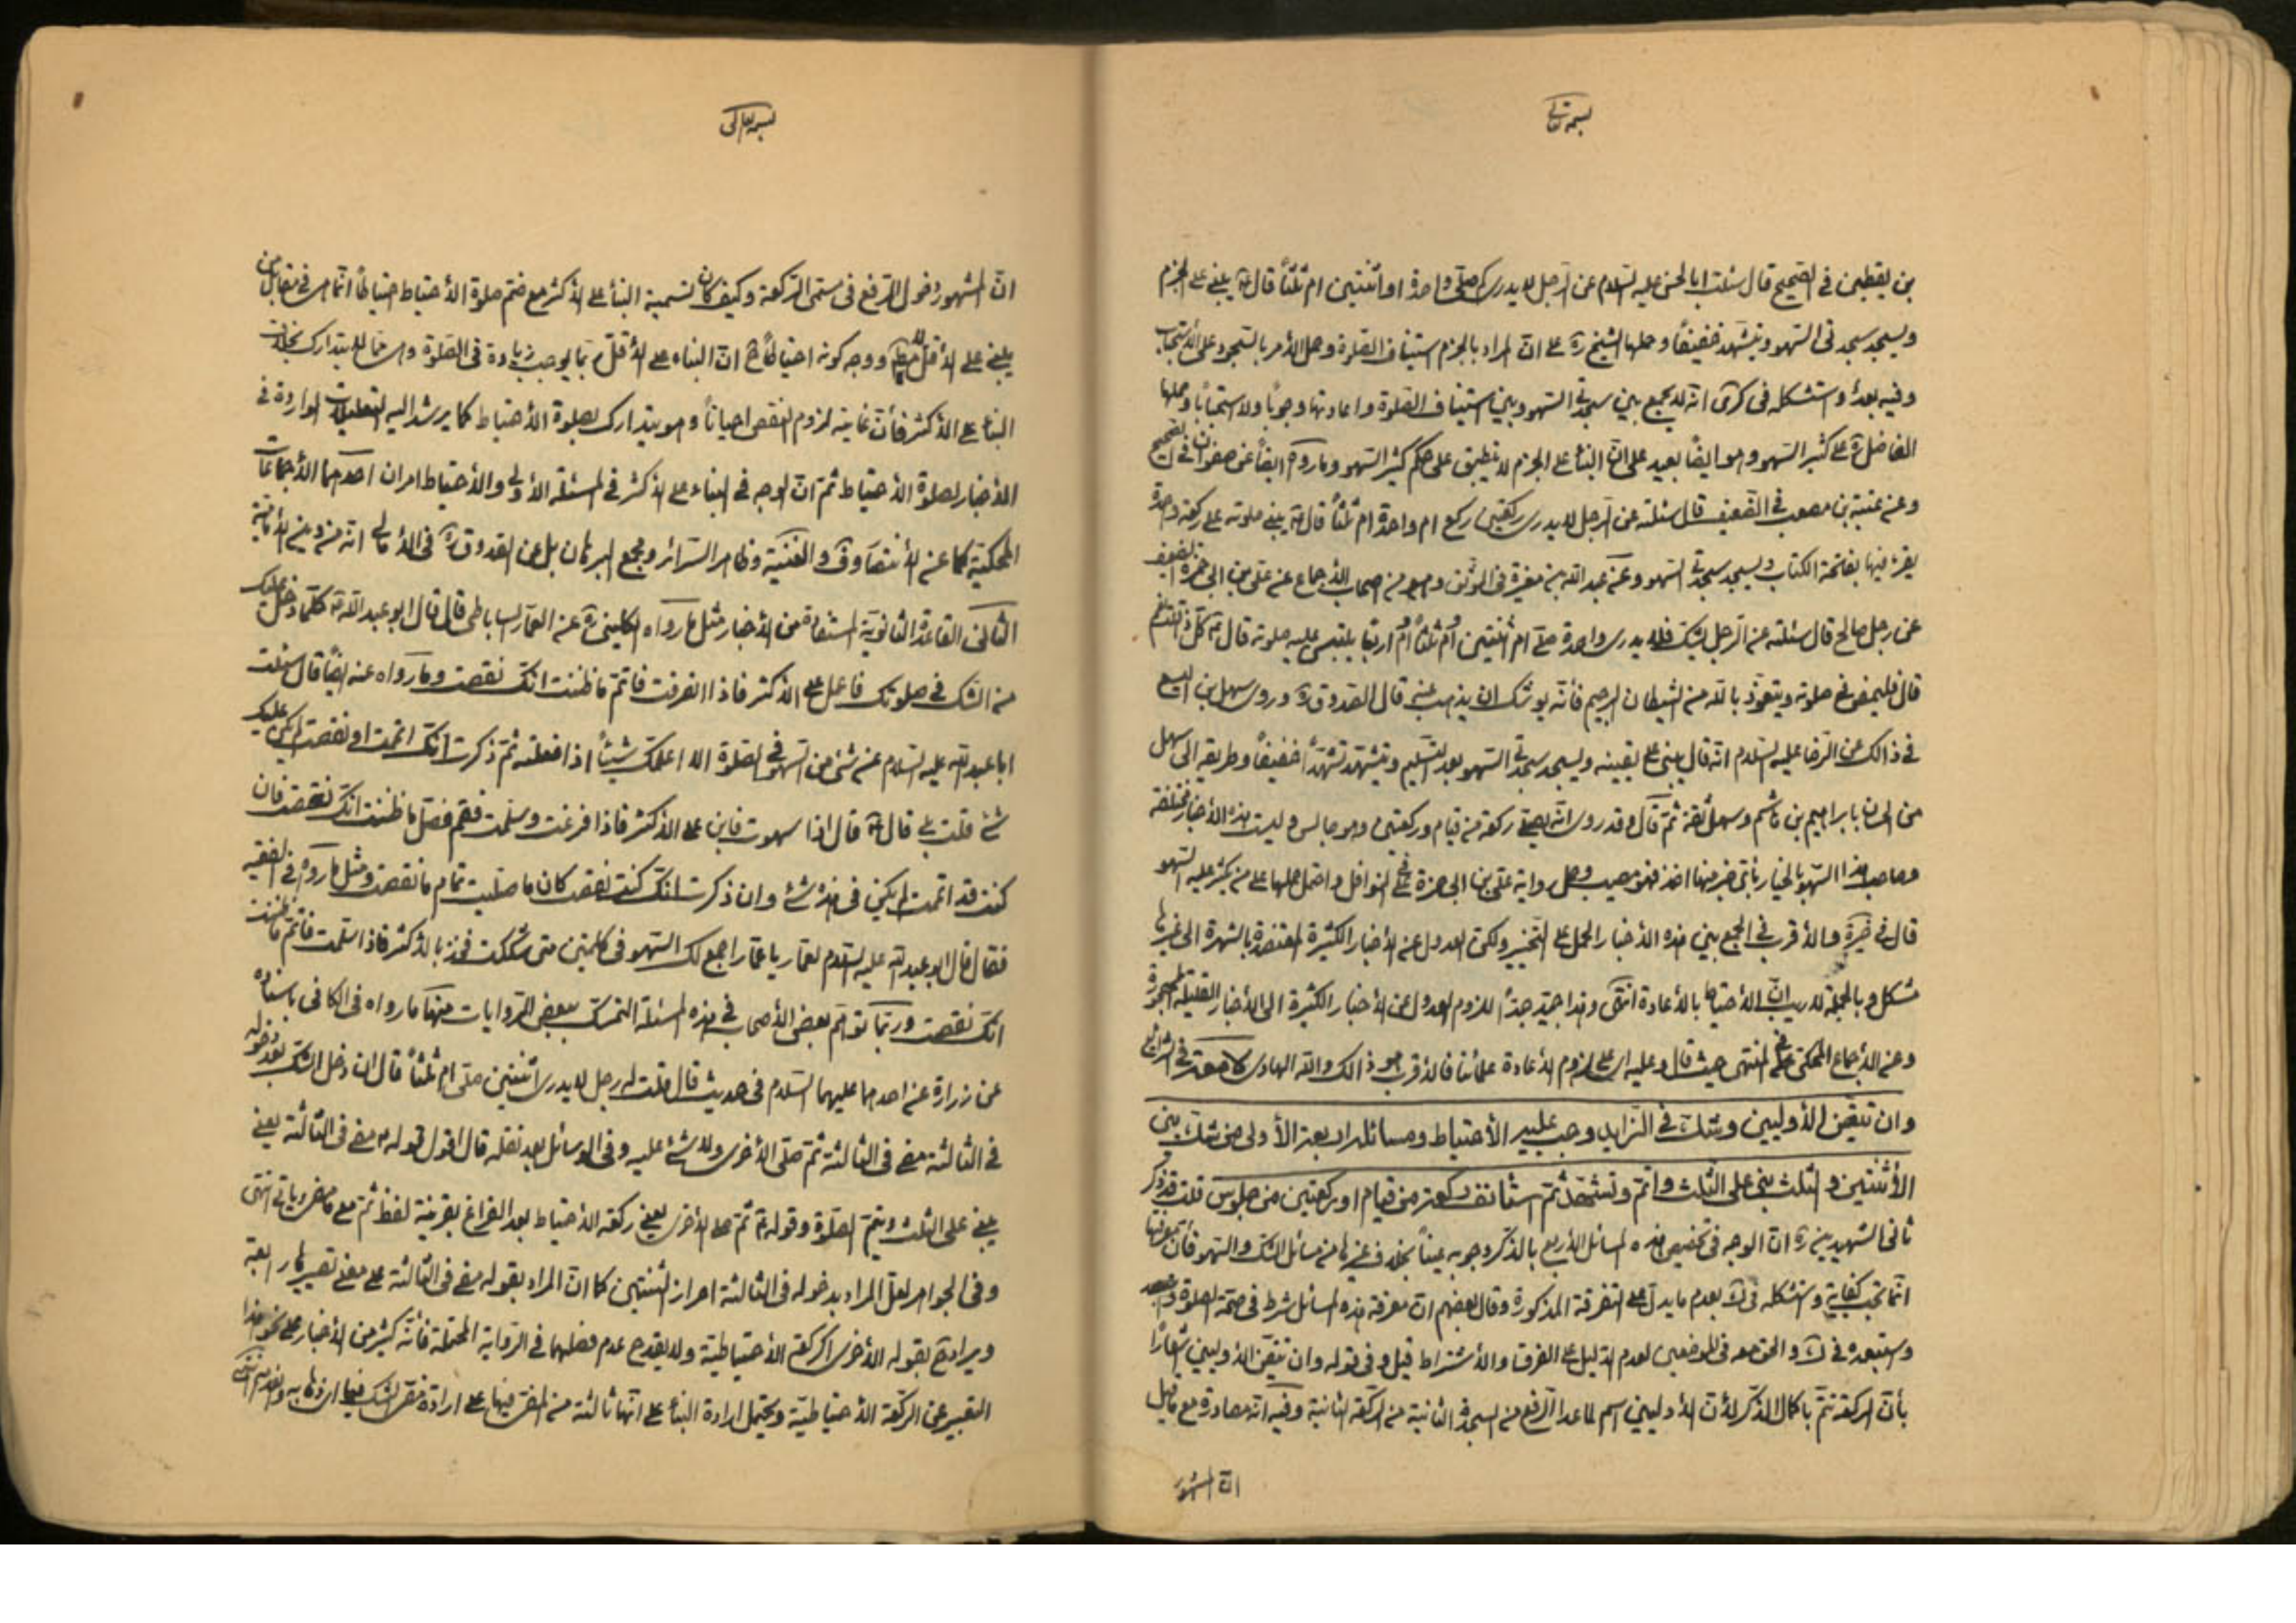 بسمه تعالى
بن يقطين فى الصحيح قال سئلت ابا الحسن عليه السلام عن الرجل لا يدرى كم صلى واحدة او اثنتين ام ثلثاً قال ع يبنى على الجزم
ويسجد سجدتى السهو ويتشهد خفيفاً وحملها الشيخ ره على ان المراد بالجزم استيناف الصلوة وحمل الأمر بالسجود على الاستحباب
وفيه بعد واستشكله فى كرى انه لا يجمع بين سجدتى السهو وبين استيناف الصلوة واعادتها وجوباً ولا استحباباً وحملها
الفاضل ره على كثير السهو وهو ايضاً بعيد على ان البناء على الجزم لا ينطبق على حكم كثير السهو وما رواه ايضاً عن صفوان فى الصحيح
وعن عنبسة بن مصعب فى الضعيف قال سئلته عن الرجل لا يدرى ركعتين ركع ام واحدة ام ثلثاً قال ع يبنى صلوته على ركعة واحدة
يقرء فيها بفاتحة الكتاب ويسجد سجدتى السهو وعن عبد الله بن مغيرة فى الموثق وهو من اصحاب الأجماع عن على بن ابى حمزة الضعيف
عن رجل صالح قال سئلته عن الرجل يشك فلا يدرى واحدة صلى ام اثنتين ام ثلثاً ام اربعاً يلتبس عليه صلوته قال ع كل ذا قلت نعم
قال فليمض فى صلوته ويتعوذ بالله من الشيطان الرجيم فأنه يوشك ان يذهب عنه قال الصدوق ره وروى سهل بن اليسع
فى ذالك عن الرضا عليه السلام انه قال يبنى على يقينه ويسجد سجدتى السهو بعد التسليم ويتشهد تشهداً خفيفاً وطريقه الى سهل
من الحسان بابراهيم بن هاشم وسهل ثقة ثم قال وقد روى انه يصلى ركعة من قيام وركعتين وهو جالس وليست هذه الأخبار مختلفة
وصاحب هذا السهو بالخيار باى خبر منها اخذ فهو مصيب وحمل رواية على بن ابى حمزة على النوافل واحتمل حملها على من يكثر عليه السهو
قال فى خيرة والأقرب فى الجمع بين هذه الأخبار الحمل على التخيير ولكن العدول عن الأخبار الكثيرة المعتضدة بالشهرة الى غيرها
مشكل وبالجملة لا ريب ان الأحتياط بالأعادة انتهى وهذا جيد جداً للزوم العدول عن الأخبار الكثيرة الى الأخبار القليلة المهجورة
وعن الأجماع المحكى عن المنتهى حيث قال وعليه اى على لزوم الأعادة علمائنا فالأقرب هو ذالك والله الهادى كما صرح فى الشرايع
وان تيقن الأوليين وشك فى الزايد وجب عليه الأحتياط ومسائله اربعة الأولى من شك بين
الأثنتين والثلث بنى على الثلث واتم وتشهد ثم استئانف ركعة من قيام او ركعتين من جلوس قلت قد ذكر
ثانى الشهيدين ره ان الوجه فى تخصيص هذه المسائل الأربع بالذكر وجوبه عيناً بخلاف غيرها من مسائل الشك والسهو فأن معرفتها
انما تجب كفاية واستشكله فى ك بعدم ما يدل على التفرقة المذكورة وقال بعضهم ان معرفة هذه المسائل شرط فى صحة الصلوة
واستبعده فى ك والحق معه فى الموضعين لعدم الدليل على الفرق والأشتراط قيل وفى قوله وان تيقن الأوليين شعاراً
بأن الركعة تتم باكمال الذكر لأن الأوليين اسم لما عدا الرفع من السجدة الثانية من الركعة الثانية وفيه انه مصادرة مع ما قيل
ان المشهور
بسمه تعالى
ان المشهور دخول الرفع فى مسمى الركعة وكيف كان تسمية البناء على الأكثر مع ضم صلوة الأحتياط احتياطاً انما هى فى مقابل من
يبنى على الأقل ووجه كونه احتياطاً ان البناء على الأقل ربما يوجب زيادة فى الصلوة وهى مما لا يتدارك بخلاف
البناء على الأكثر فأن غايته لزوم النقص احياناً وهو يتدارك بصلوة الأحتياط كما يرشد اليه التعليلات الواردة فى
الأخبار لصلوة الأحتياط ثم ان الوجه فى البناء على الأكثر فى المسئلة الأولى والأحتياط امران احدهما الأجماعات
المحكية كما عن الأنتصار وف والغنية وظاهر السرائر ومجمع البرهان بل عن الصدوق ره فى الأمالى انه من دين الأمامية
الثانى القاعدة الثانوية المستفادة من الأخبار مثل ما رواه الكلينى ره عن العمار الساباطى قال قال ابو عبد الله ع كلما دخل عليك
من الشك فى صلوتك فاعمل على الأكثر فاذا انصرفت فاتم ما ظننت انك نقصت وما رواه عنه ايضاً قال سئلت
ابا عبد الله عليه السلام عن شئ من السهو فى الصلوة الا اعلمك شيئاً اذا فعلته ثم ذكرت انك اتممت او نقصت لم يكن عليك
شئ قلت بلى قال ع قال اذا سهوت فابن على الأكثر فاذا فرغت وسلمت فقم فصل ما ظننت انك نقصت فان
كنت قد اتممت لم يكن فى هذه شئ وان ذكرت انك كنت نقصت كان ما صليت تمام ما نقصت ومثل ما رواه فى الفقيه
فقال قال ابو عبد الله عليه السلام لعمار يا عمار اجمع لك السهو فى كلمتين متى شككت فخذ بالأكثر فاذا سلمت فاتم ما ظننت
انك نقصت وربما توهم بعض الأصحاب فى هذه المسئلة التمسك ببعض الروايات منها ما رواه فى الكافى باسناده
عن زرارة عن احدهما عليهما السلام فى حديث قال قلت له رجل لا يدرى اثنتين صلى ام ثلثاً قال ان دخل الشك بعد دخوله
فى الثالثة مضى فى الثالثة ثم صلى الأخرى ولا شئ عليه وفى الوسائل بعد نقله قال اقول قوله ع مضى فى الثالثة يعنى
يبنى على الثلث ويتم الصلوة وقوله ع ثم صلى الأخرى يعنى ركعة الأحتياط بعد الفراغ بقرينة لفظ ثم مع ما مضى وياتى انتهى
وفى الجواهر لعل المراد بدخوله فى الثالثة احراز الثنتين كما ان المراد بقوله مضى فى الثالثة على معنى تصييرها رابعة
ويراد ح بقوله الأخرى الركعة الأحتياطية ولا يقدح عدم فصلهما فى الرواية المحتملة فأنه كثير من الأخبار على نحو هذا
التعبير عن الركعة الأحتياطية ويحتمل ارادة البناء على انها ثالثة من المضى فيها على ارادة